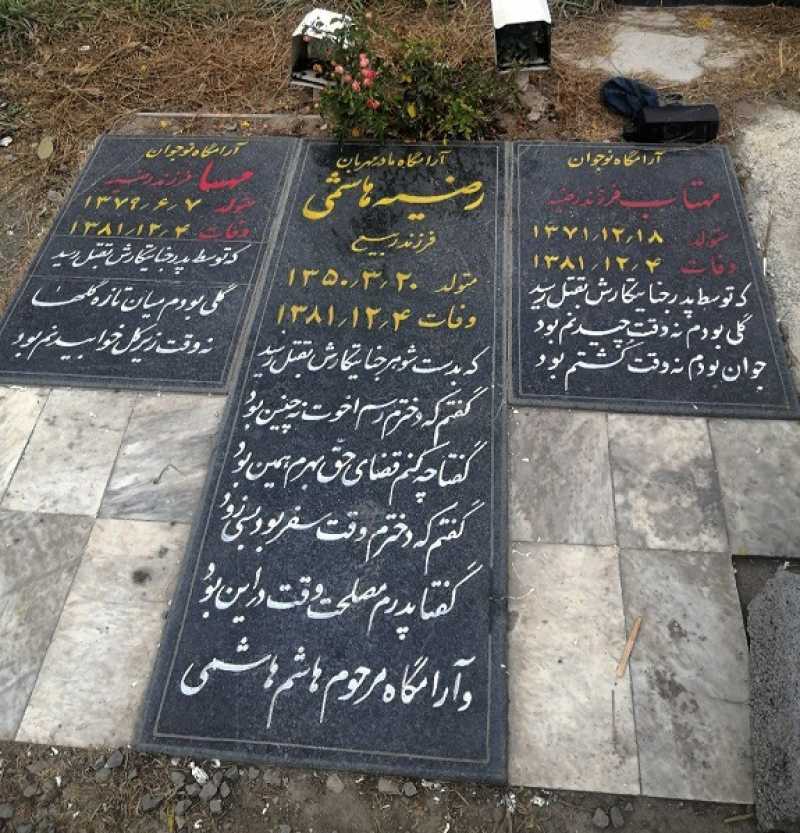 آرامگاه نوجوان
مهتاب فرزند رضیه
متولد ۱۳۷۱٫۱۲٫۱۸
وفات ۱۳۸۱٫۱۲٫۴
که توسط پدر جنایتکارش بقتل رسید
گلی بودم نه وقت چیدنم بود
جوان بودم نه وقت کشتم بود
آرامگاه مادر مهربان
رضیه هاشمی
فرزند ربیع
متولد ۱۳۵۰٫۳٫۲۰
وفات ۱۳۸۱٫۱۲٫۴
که بدست شوهر جنایتکارش بقتل رسید
گفتم که دخترم رسم اخوت نه چنین بود
گفتا چه کنم قضای حق بهرم همین بود
گفتم که دخترم وقت سفر بود بسی زود
گفتا پدرم مصلحت وقت در این بود
و آرامگاه مرحوم هاشم هاشمی
آرامگاه نوجوان
مهسا فرزند رضیه
متولد ۱۳۷۹٫۶٫۷
وفات ۱۳۸۱٫۱۲٫۴
که توسط پدر جنایتکارش بقتل رسید
گلی بودم میان تازه گلها
نه وقت زیر گل خوابیدنم بود